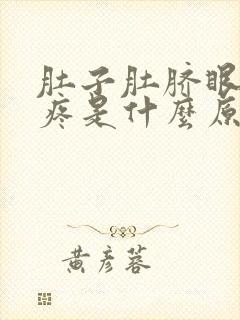 肚子肚脐眼
疼是什麼原
黄彦蓉